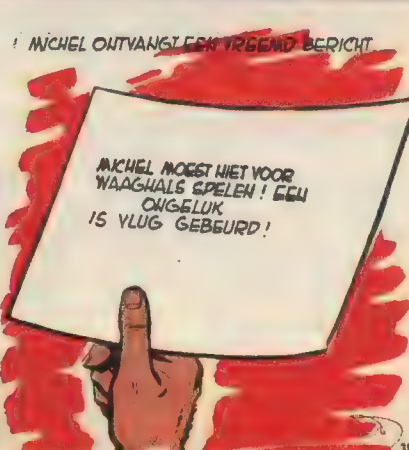 ! MICHEL ONTVANGT EEN VREEMD BERICHT
MICHEL MOEST NIET VOOR
WAAGHALS SPELEN ! EEN
ONGELUK
IS VLUG GEBEURD !